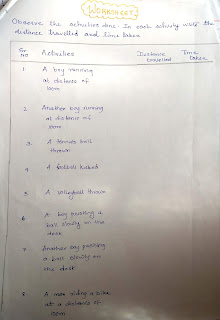 WORKSHEET
Observe the activities done. In each activity write the
distance travelled and time taken
Sr. no Activities Distance travelled Time taken
1 A boy running
at distance of
100m
2 Another boy running
at distance of
100m
3 A tennis ball
thrown
4 A football kicked
5 A volleyball thrown
6 A boy pushing a
ball slowly on the
desk
7 Another boy pushing
a ball slowly on
the desk
8 A man riding a bike
at a distance of
100m